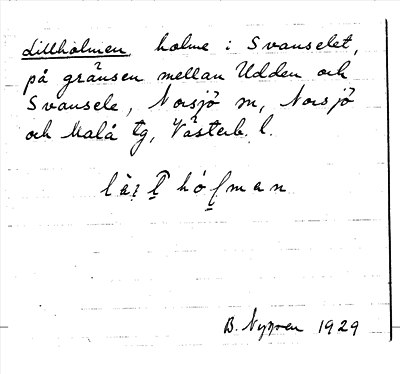 Lillholmen holme i Svanselet,
på gränsen mellan Udden och
Svansele, Norsjö sn, Norsjö
och Malå tg, Västerb. l.
B. Nygren 1929